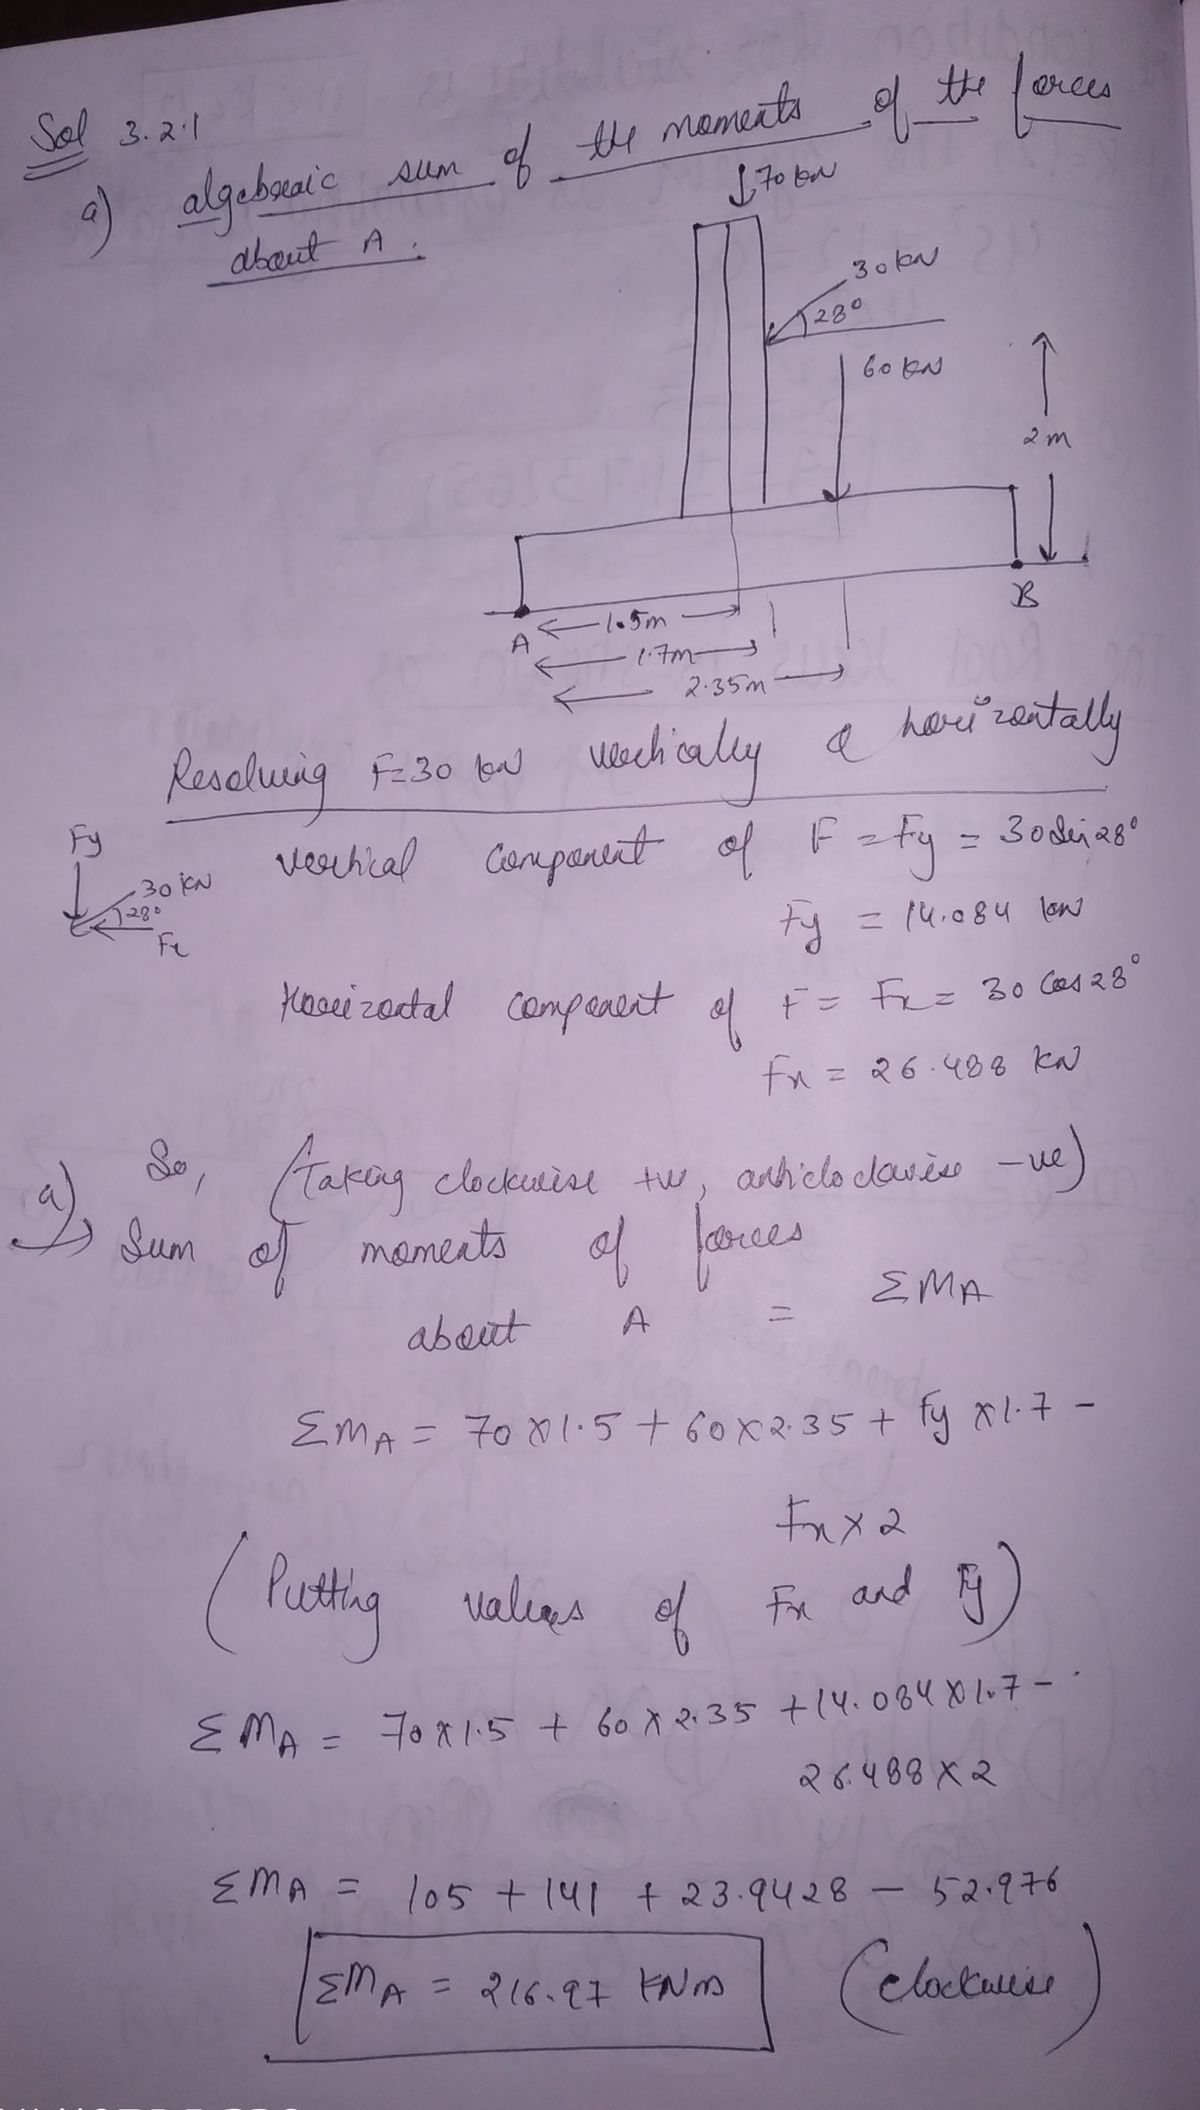 Sol 3.2.1
a) algebraic sum of the moments of the forces
about A.
70 kN
30 kN
28°
60 kN
2m
A
B
1.5m
1.7m
2.35m
Resolving F=30 kN vertically & horizontally
Fy
30 kN
28°
Fx
vertical component of F = Fy = 30 Sin 28°
Fy = 14.084 kN
Horizontal component of F = Fx = 30 Cos 28°
Fx = 26.488 kN
a) So, (Taking clockwise +ve, anticlockwise -ve)
→ Sum of moments of forces
about A = ΣMA
ΣMA = 70 × 1.5 + 60 × 2.35 + Fy × 1.7 -
Fx × 2
(Putting values of Fx and Fy)
ΣMA = 70 × 1.5 + 60 × 2.35 + 14.084 × 1.7 -
26.488 × 2
ΣMA = 105 + 141 + 23.9428 - 52.976
ΣMA = 216.97 KNm (clockwise)